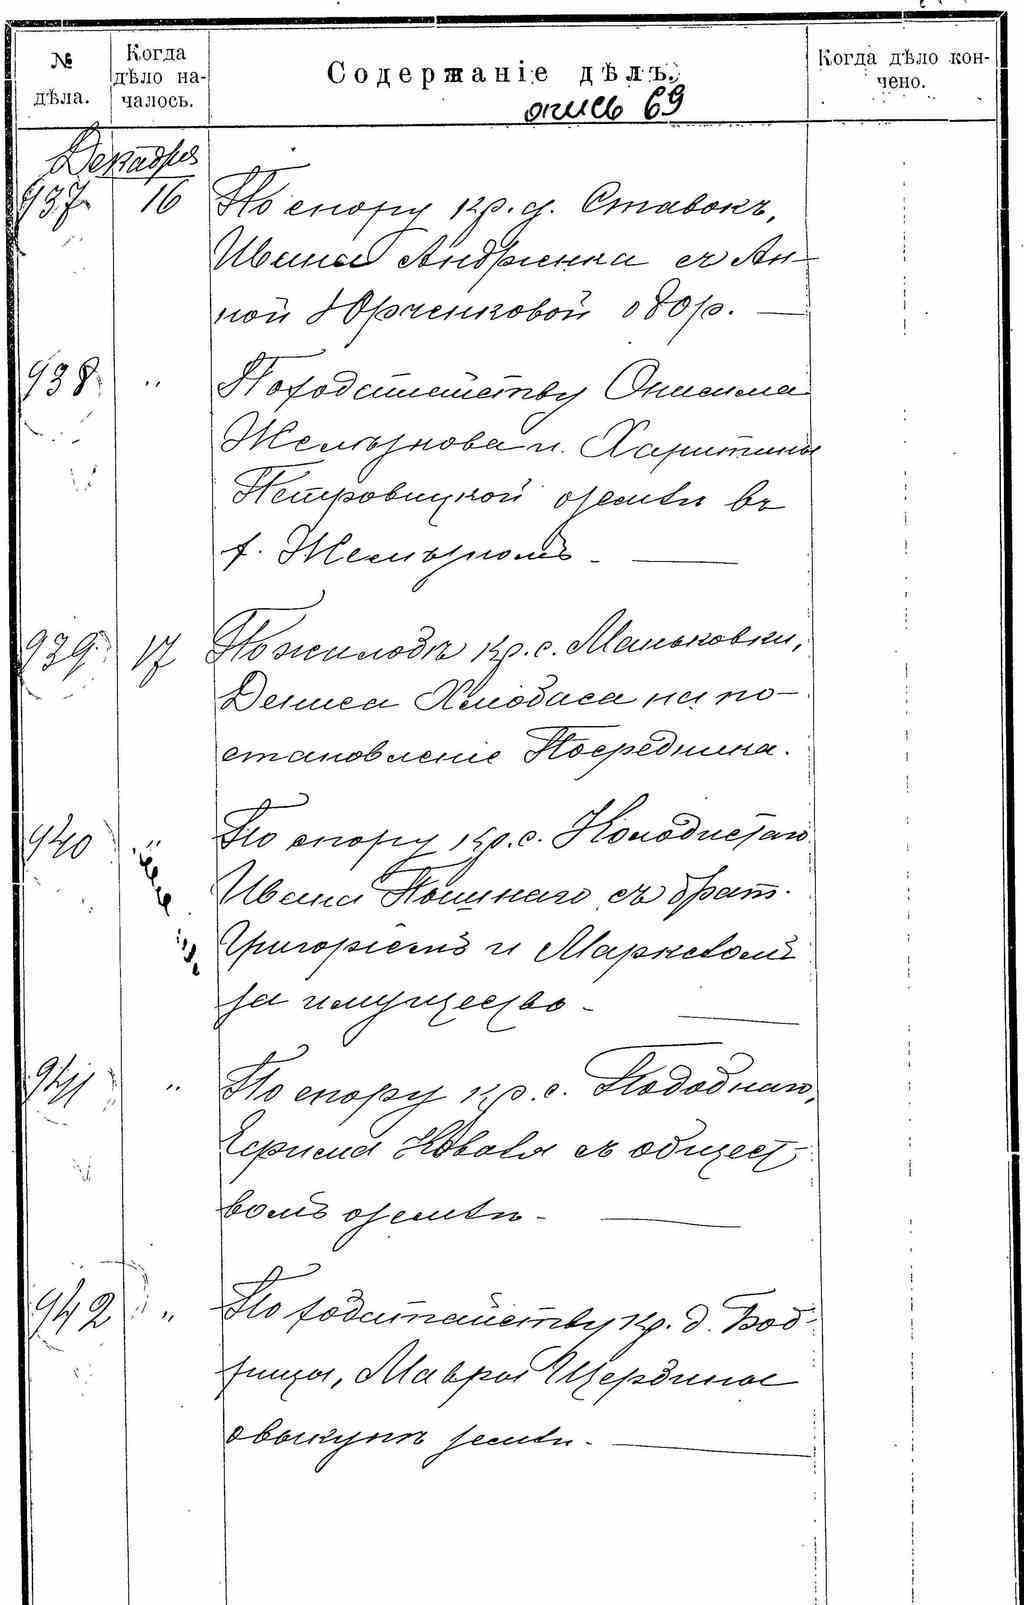 № дѣла.
Когда дѣло на-
чалось.
Содержаніе дѣлъ.
Когда дѣло кон-
чено.
опись 69
Декабря
937 16 По спору кр. д. Ставокъ,
Ивана Андріенка съ Ан-
ной Юрченковой о двор.
938 " По ходатайству Онисима
Желѣзнова и Харитины
Петровицкой о землѣ въ
х. Желѣзномъ
939 17 По жалобѣ кр. с. Маньковки,
Дениса Хлюбаса на по-
становленіе Посредника.
940 " По спору кр. с. Колодистаго
Ивана с брат.
Григоріемъ и
за имущество
941 " По спору кр. с.
Ефима Коваля съ общест-
вомъ о землѣ
942 " По ходатайству кр. д. Бод-
Мавры Щербины
о выкупѣ земли